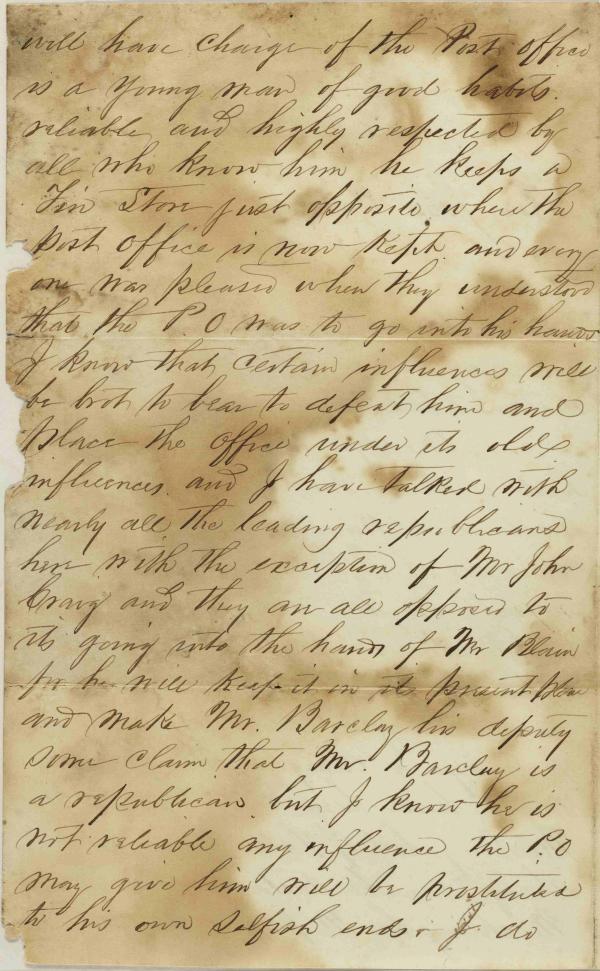 will have charge of the Post office
is a young man of good habits.
reliable, and highly respected by
all who know him he keeps a
Tin Store just opposite where the
post office is now kept. and every
one was pleased when they understood
that the P. O was to go into his hands
I know that certain influences will
be brot to bear to defeat him and
place the office under its old
influences. and I have talked with
nearly all the leading republicans
here with the exception of Mr John
Craig and they are all opposed to
its going into the hands of Mr Blain
for he will keep it in its present place
and make Mr. Barclay his deputy
some claim that Mr. Barclay is
a republican but I know he is
not reliable any influence the P. O
may give him will be prostituted
to his own selfish ends. I do